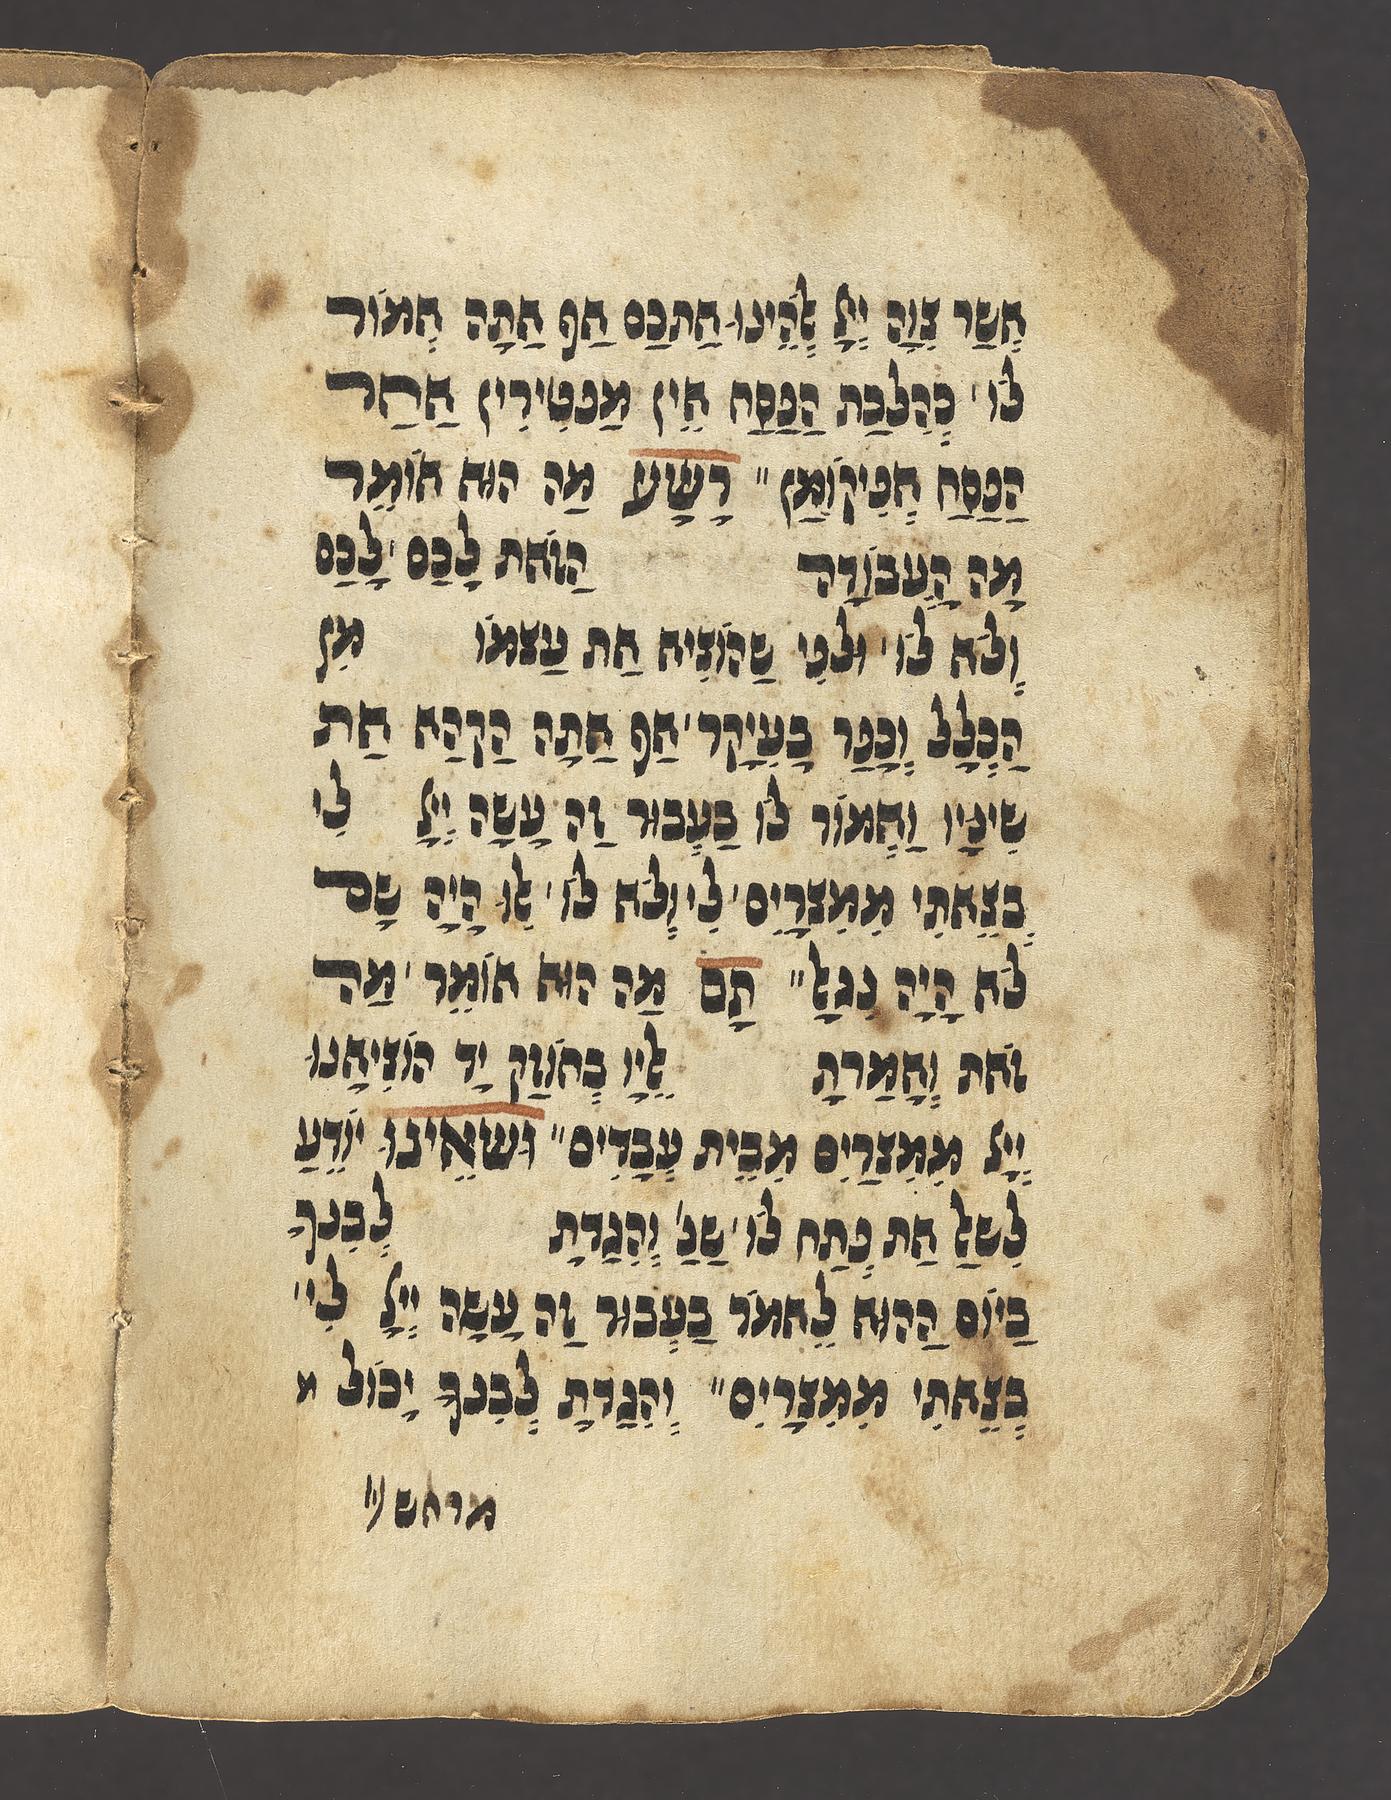 אשר צוה יי אלהינו אתכם אף אתה אמור
לו' כהלכת הפסח אין מפטירין אחר
הפסח אפיקומן" רשע מה הוא אומר
מה העבודה הזאת לכם' לכם
ולא לו' ולפי שהוציא את עצמו מן
הכלל וכפר בעיקר' אף אתה הקהא את
שיניו ואמור לו בעבור זה עשה יי לי
בצאתי ממצרים' לי ולא לו' אלו היה שם
לא היה נגאל" תם מה הוא אומר' מה
זאת ואמרת אליו בחוזק יד הוציאנו
יי ממצרים מבית עבדים" ושאינו יודע
לשאל את פתח לו' שנ' והגדת לבנך
ביום ההוא לאמר בעבור זה עשה יי לי'
בצאתי ממצרים" והגדת לבנך יכול מ
מראש